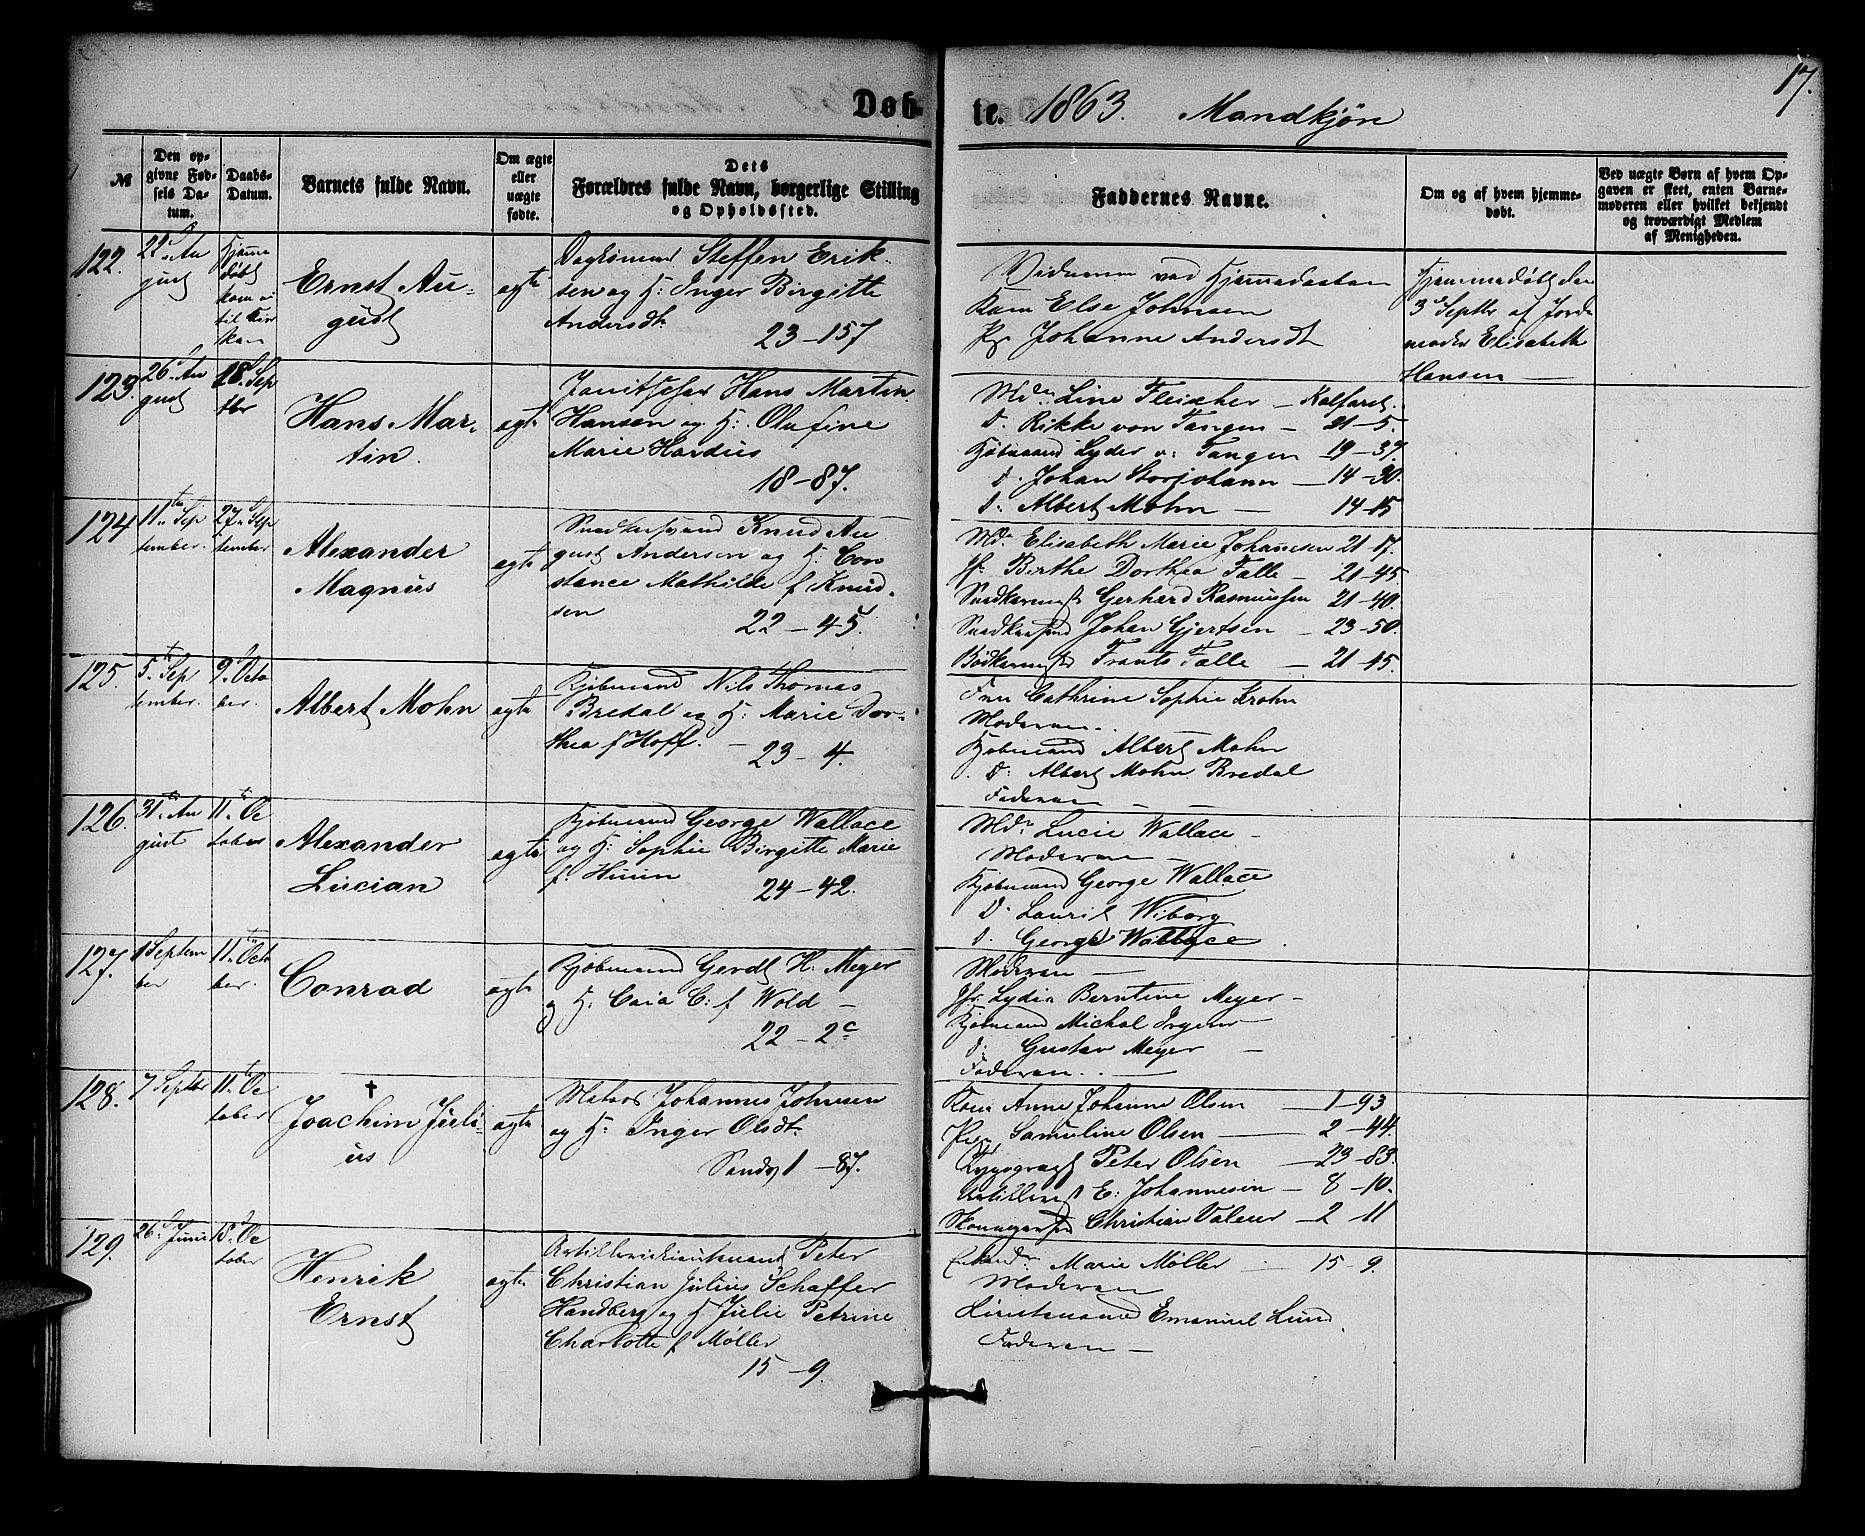 17.
Døb-
te. 1863. Mandkjøn
№
Den op-
givne Fød-
sels Da-
tum.
Daabs-
Datum.
Barnets fulde Navn.
Om ægte
eller
uægte
fødte.
Dets
Forældres fulde Navn, borgerlige Stilling
og Opholdssted.
Faddernes Navne.
Om og af hvem hjemme-
døbt.
Ved uægte Børn af hvem Op-
gaven er skeet, enten Barne-
moderen eller hvilket bekjendt
og troværdigt Medlem
af Menigheden.
122.
22d Au
gust
Hjemme
døbt
kom ei
til Kir
ken
Ernst Au-
gust
ægte
Dagsmand Steffen Erik-
sen og H: Inger Birgitte
Andersdt.
23-157
Vidnerne ved Hjemmedaaben
Kone Else Johnsen
Pg Johanne Andersdt
Hjemmedøbt den
3d Septbr af Jorde
moder Elisabeth
Hansen
123.
26d Au
gust
18. Sep
tbr
Hans Mar-
tin.
ægte
Hans Martin
Hansen og H: Olufine
Marie Hardus
18-87.
Md. Line Fleischer - Kalfaret.
D. Rikke von Tangen - 21-5.
Kjøbmand Lyder v: Tangen 19-37.
D. Johan Storjohann - 14-30.
D. Albert Mohn - 14-15
124
11te Sep
tember.
27d Sep
tember
Alexander
Magnus
ægte
Snedkersvend Knud Au
gust Andersen og H: Con
stance Mathilde f Knud-
sen
22-45.
Md. Elisabeth Marie Johannesen 21-17.
Jf: Birthe Dorthea Falle - 21-45
Snedkermest Gerhard Rasmussen 21-40.
Snedkersvnd Johan Gjertsen - 23-50.
Bødkermest Frants Falle - 21-15.
125.
5t Sep
tember.
9d Octo
ber.
Albert Mohn
ægte
Kjøbmand Nils Thomas
Bredal og H: Marie Dor-
thea f Hoff.
23-4.
Fru Cathrine Sophie Krohn
Moderen.
Kjøbmand Albert Mohn
D: Albert Mohn Bredal
Faderen
126.
31te Au
gust
11t Oc
tober
Alexander
Lucian
ægte
Kjøbmand George Wallace
og H: Sophie Birgitte Marie
f: Huun
24-42.
Md. Lucie Wallace -
Moderen -
Kjøbmand George Wallace
D. Laurit Wiborg
D. George Wallace
127.
1 Septem
ber
11t Octo
ber.
Conrad
ægte
Kjøbmand Gerdt H: Meyer
og H: Caia C: f Wold -
22-2c
Moderen -
Jfr Lydia Berntine Meyer -
Kjøbmand Michal Irgens
D. Gustav Meyer -
Faderen.
128.
7 Septbr
11t Oc
tober
†
Joachim Juli-
us
ægte
Matros Johannes Johnsen
og H: Inger Olsdt.
Sandv 1-87.
Kone Anne Johanne Olsen - 1-93
Pige Samuline Olsen - 2-44.
Typograf Peter Olsen - 23-83.
Artillerist E: Johannesen - 8-10.
Christian Valeur - 2-11
129.
26d Junii
18d Oc
tober
Henrik
Ernst
ægte
Artillerielieutenant Peter
Christian Julius Schaffer
Handberg og H Julie Petrine
Charlotte f Møller
15-9.
Enkemd. Marie Møller - 15-9.
Moderen
Lieutenand Emanuel Lund.
Faderen -